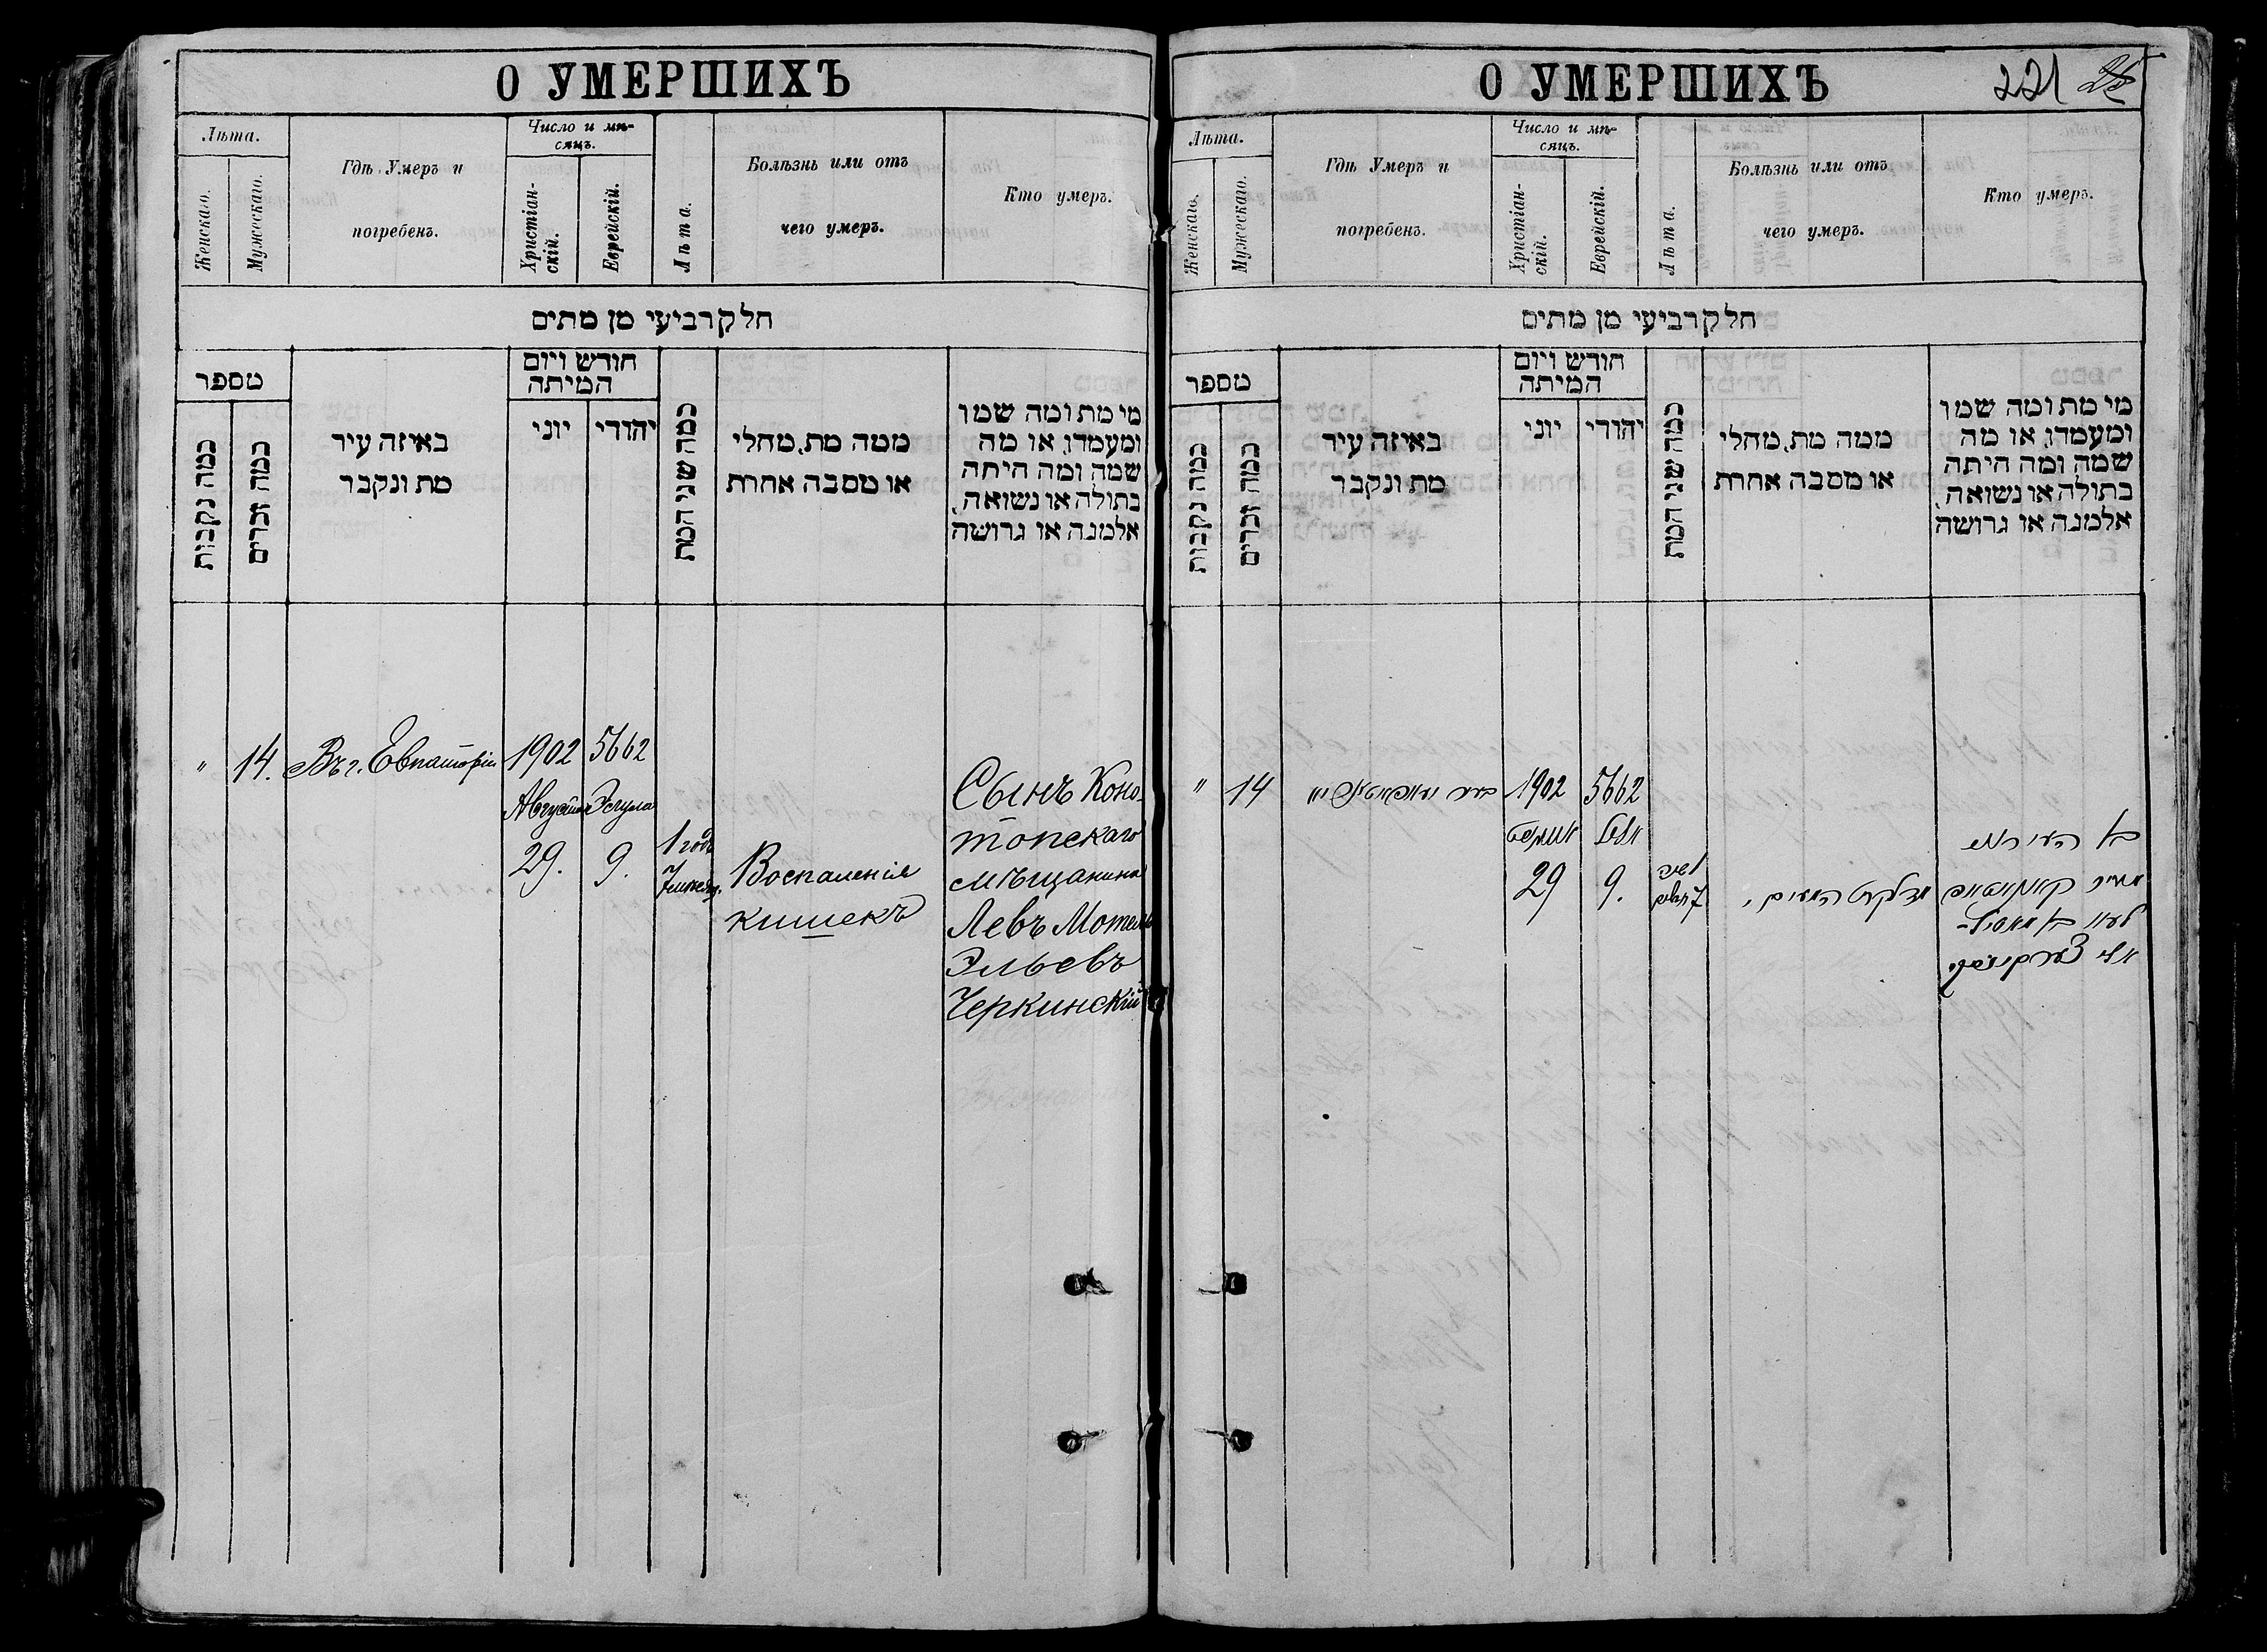 О УМЕРШИХЪ
Лѣта.
Женскаго.
Мужескаго.
Гдѣ Умеръ и
погребенъ.
Число и мѣ-
сяцъ.
Христіан-
скій.
Еврейскій.
Лѣта.
Болѣзнь или отъ
чего умеръ.
Кто умеръ.
חלק רביעי מן מתים
מספר
כמה נקבות
כמה זכרים
באיזה עיר
מת ונקבר
חודש ויום
המיתה
יוני
יהודי
כמה שני המת
ממה מת, מחלי
או מסבה אחרת
מי מת ומה שמו
ומעמדו, או מה
שמה ומה היתה
בתולה או נשואה,
אלמנה או גרושה
"
14.
Въ г. Евпаторіи
1902
Августа
29.
5662
Элула
9.
1 годъ
7 месяц.
Воспаленія
кишекъ
Сынъ Коно-
топскаго
мѣщанина
Левъ Мотель
Эльевъ
Черкинскій
О УМЕРШИХЪ
221
Лѣта.
Женскаго.
Мужескаго.
Гдѣ Умеръ и
погребенъ.
Число и мѣ-
сяцъ.
Христіан-
скій.
Еврейскій.
Лѣта.
Болѣзнь или отъ
чего умеръ.
Кто умеръ.
חלק רביעי מן מתים
מספר
כמה נקבות
כמה זכרים
באיזה עיר
מת ונקבר
חודש ויום
המיתה
יוני
יהודי
כמה שני המת
ממה מת, מחלי
או מסבה אחרת
מי מת ומה שמו
ומעמדו, או מה
שמה ומה היתה
בתולה או נשואה,
אלמנה או גרושה
"
14
1902
אויגוסט
29
5662
אלול
9.
1 שנה
7
המעים